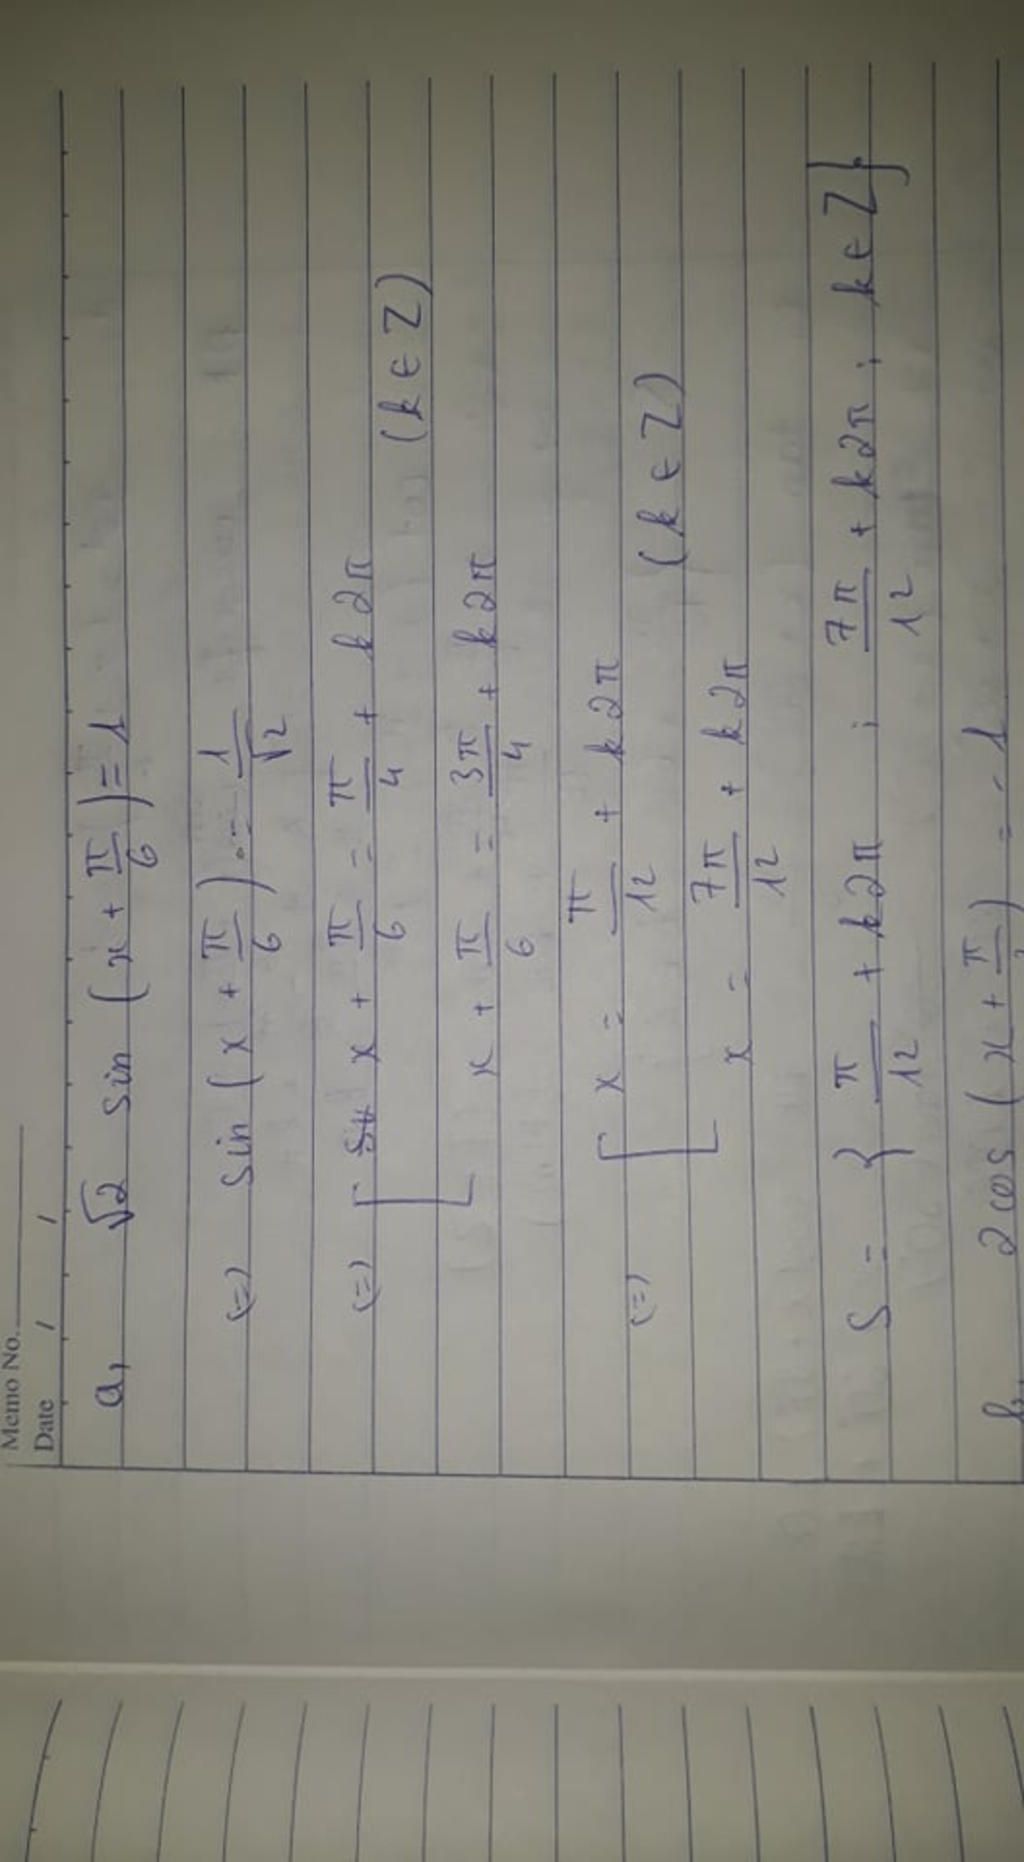 Memo No.
Date / /
a, √2 sin (x + π/6) = 1
(=) sin (x + π/6) = 1/√2
(=) [ x + π/6 = π/4 + k2π
(k ∈ Z)
x + π/6 = 3π/4 + k2π
(=) [ x = π/12 + k2π
(k ∈ Z)
x = 7π/12 + k2π
S = { π/12 + k2π ; 7π/12 + k2π ; k ∈ Z }.
2 cos (x + π/ ) = -1